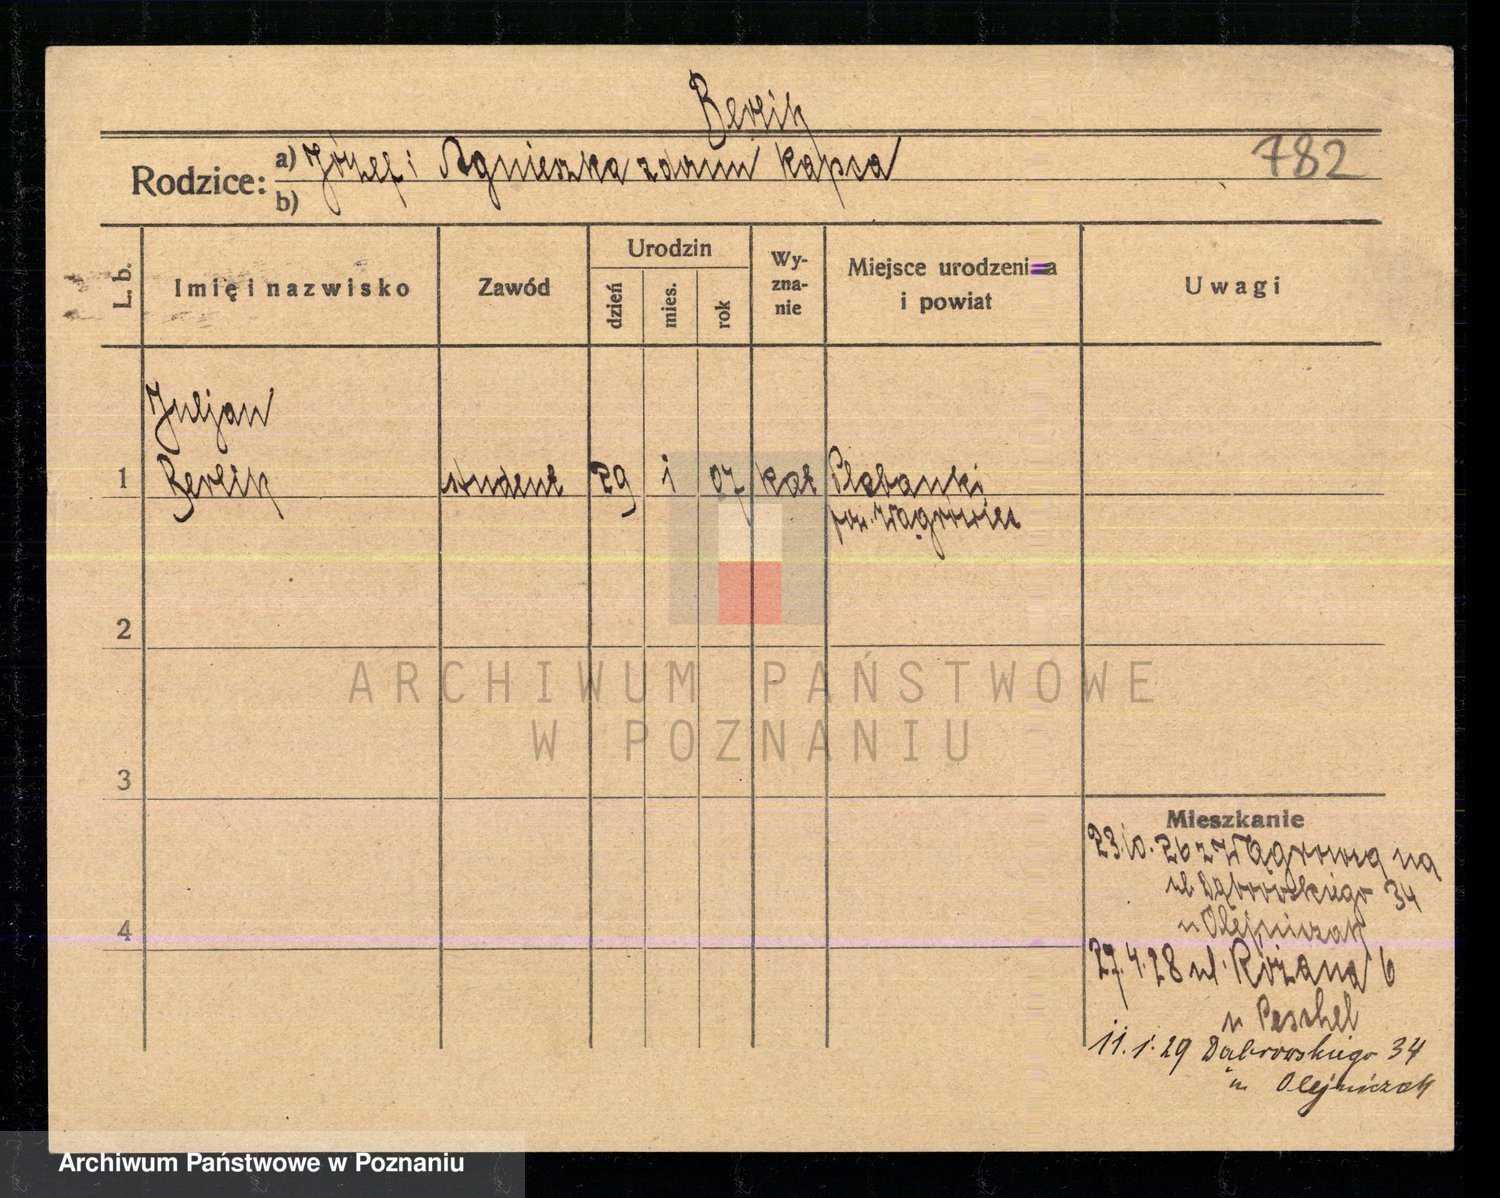 Berlik
782
Rodzice: a) Józef i Agnieszka z dom Kapsa
b)
L. b.
Imię i nazwisko
Zawód
Urodzin
dzień
mies.
rok
Wy-
zna-
nie
Miejsce urodzenia
i powiat
Uwagi
Juljan
1 Berlik student 29 i 07 kat Plebanki
pow. Wągrowiec
2
3
4
Mieszkanie
23.10.26 z Wągrowca na
ul Dąbrowskiego 34
u Olejniczak
27.4.28 ul. Różana 6
u Peschel
11.1.29 Dąbrowskiego 34
u Olejniczak
ARCHIWUM PAŃSTWOWE
W POZNANIU
Archiwum Państwowe w Poznaniu